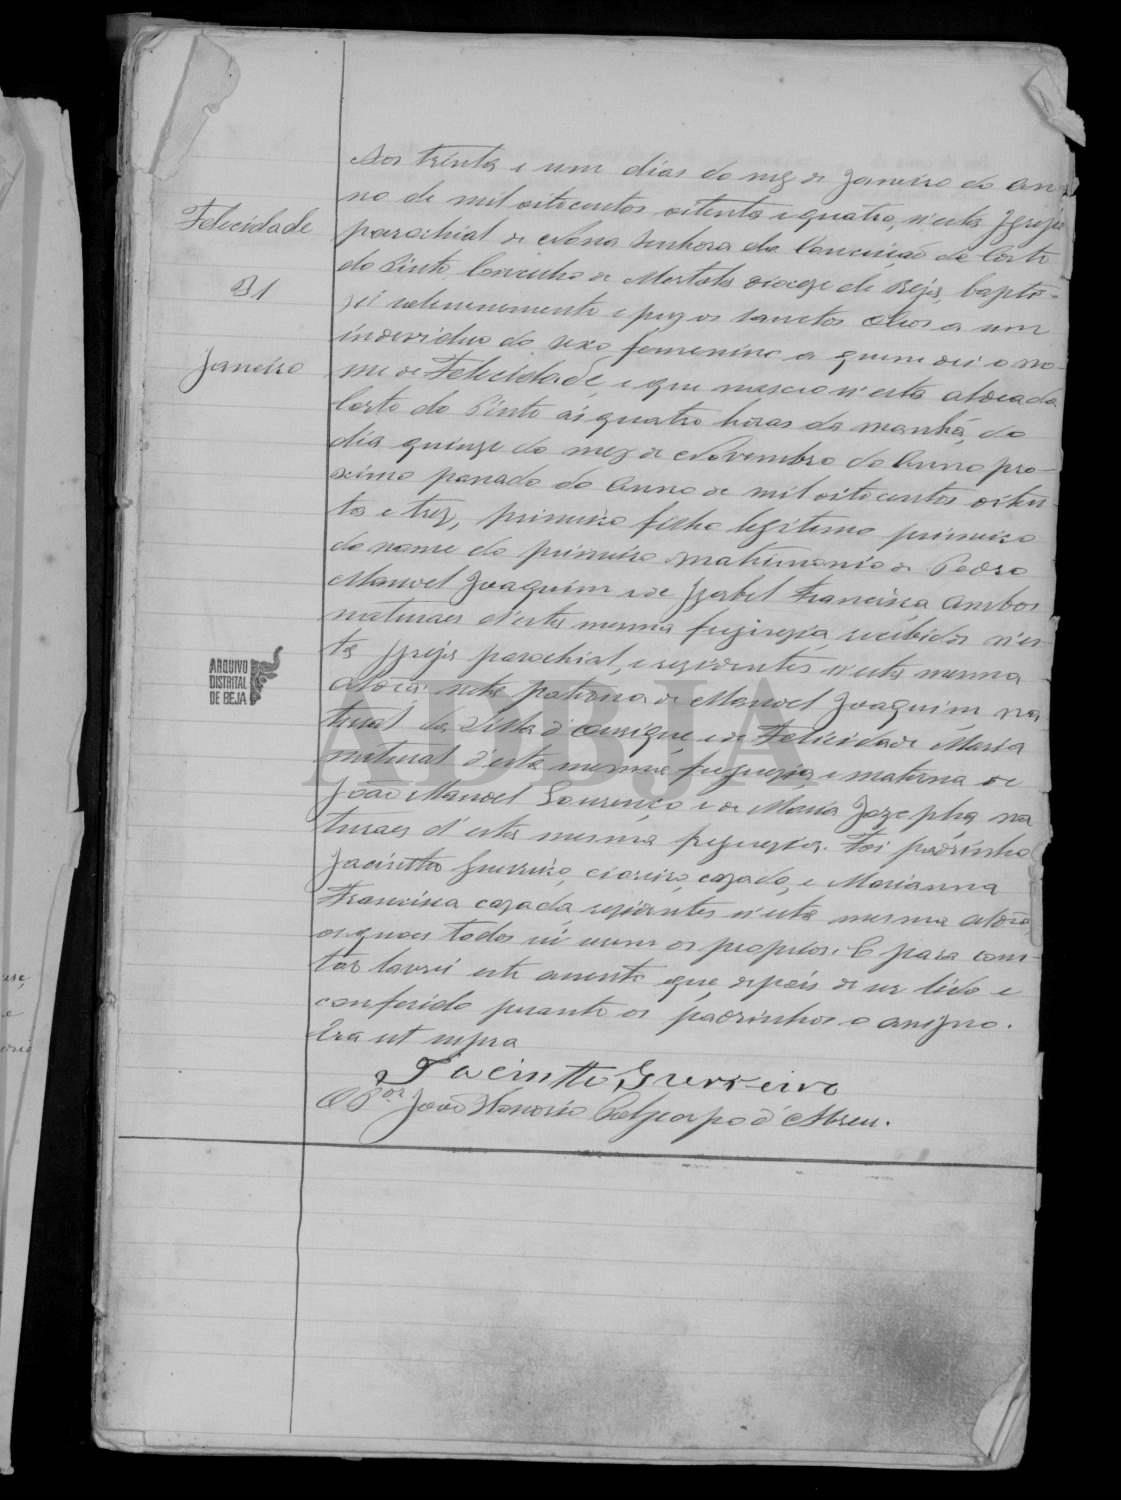 Felicidade
31
Janeiro
Aos trinta e um dias do mez de Janeiro do an-
no de mil oitocentos oitenta e quatro, n'esta Igreja
parochial de Nossa Senhora da Conceição da Corte
do Pinto Concelho de Mertola diocese de Beja, bapti-
sei solemnemente e puz os sanctos oleos a um
individuo do sexo femenino a quem dei o no-
me de Felicidade, e que nasceu n'esta aldea da
Corte do Pinto ás quatro horas da manhã, do
dia quinze do mez de Novembro do anno pro-
ximo passado do anno de mil oitocentos oiten-
ta e trez, primeiro filho legitimo primeiro
do nome do primeiro matrimonio de Pedro
Manoel Joaquim e de Izabel Francisca, ambos
naturaes d'esta mesma freguezia, recibidos n'es-
ta Igreja parochial, e rezidentes n'esta mesma
aldeia: neta paterna de Manoel Joaquim na
tural da Villa d'Ourique, e de Felicidade Maria
natural d'esta mesma freguezia, e materna de
João Manoel Lourenço e de Maria Jozepha, na
turaes d'esta mesma freguezia. Foi padrinho
Jacintho Guerreiro, cazado, e Marianna
Francisca cazada, rezidentes n'esta mesma aldeia,
os quaes todos sei serem os proprios. E para cons-
tar lavrei este assento que, depois de ser lido e
conferido perante os padrinhos o assigno.
Era ut supra
Jacintto Guerreiro
O P.or João Honorio Policarpo d'Abreu.
ARQUIVO
DISTRITAL
DE BEJA
ADBJA